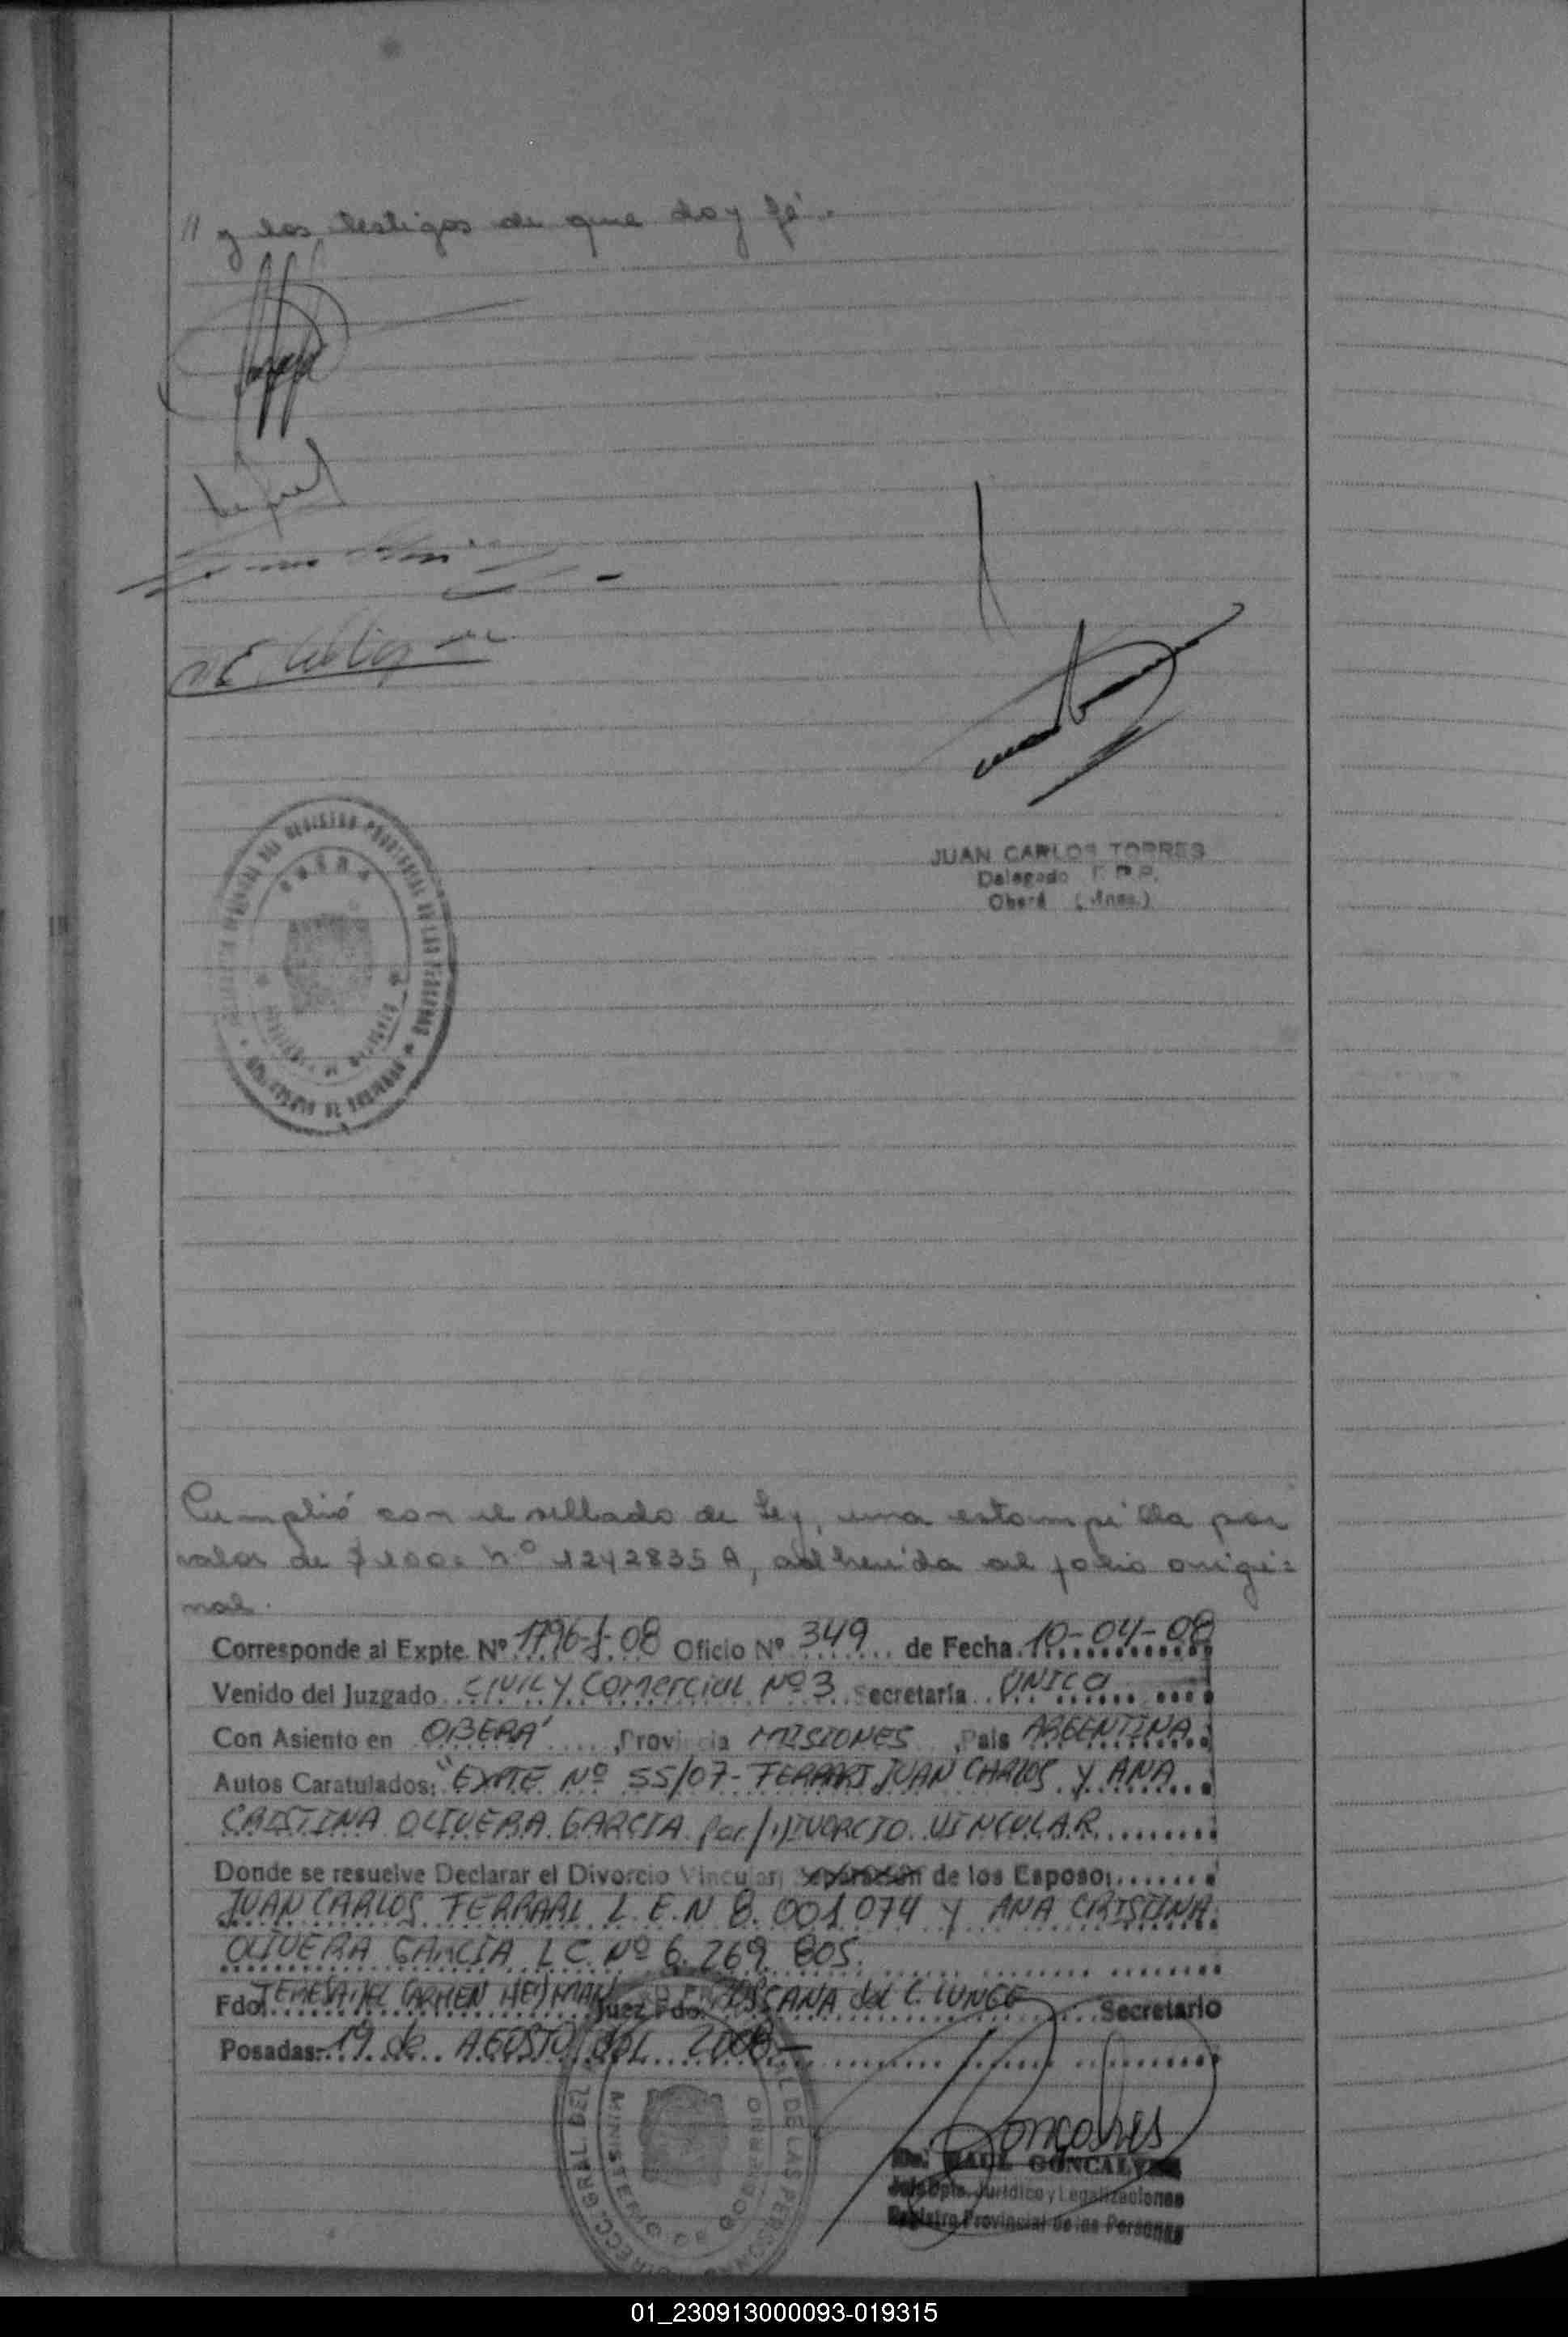 // y los testigos de que doy fé.-
JUAN CARLOS TORRES
Delegado
Oberá
Cumplió con el sellado de Ley, una estampilla por
valor de $ 100= Nº 1242835 A, adherida al folio origi=
nal.
Corresponde al Expte. Nº 1796-J-08 Oficio Nº 349 de Fecha 10-04-08
Venido del Juzgado CIVIL Y COMERCIAL Nº 3 Secretaría UNICA
Con Asiento en OBERA' ,Provincia MISIONES ,Pais ARGENTINA
Autos Caratulados: "EXPTE Nº 55/07- FERRARI JUAN CARLOS Y ANA
CRISTINA OLIVERA GARCIA Por/ DIVORCIO VINCULAR
Donde se resuelve Declarar el Divorcio Vincular, Separación de los Esposo:
JUAN CARLOS FERRARI L.E.N 8.001074 y ANA CRISTINA
OLIVERA GARCIA L.C. Nº 6.269.805.
Fdo: TERESA del CARMEN HEDMAN Juez Fdo. ROSSANA del C. LUNGE Secretario
Posadas: 19 de AGOSTO del 2008.-
DIRECC. GRAL. DEL DE LAS PERSONAS
MINISTERIO DE GOBIERNO
Goncalves
Dr. RAUL GONCALVES
Jefe Dpto. Jurídico y Legalizaciones
Registro Provincial de las Personas
01_230913000093-019315